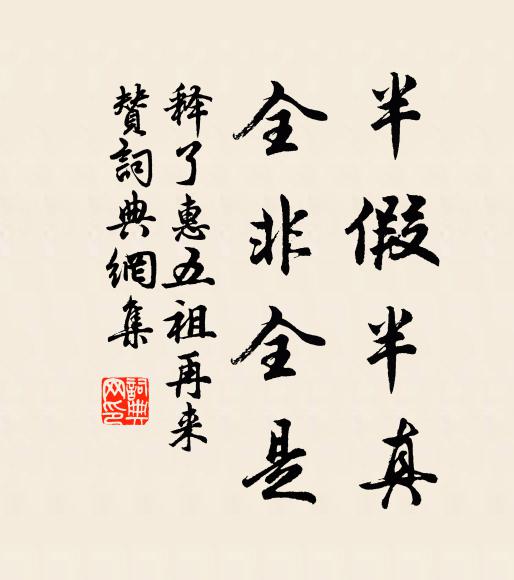 半假半真
全非全是
释了惠五祖再来
赞詞典網集
詞典网印